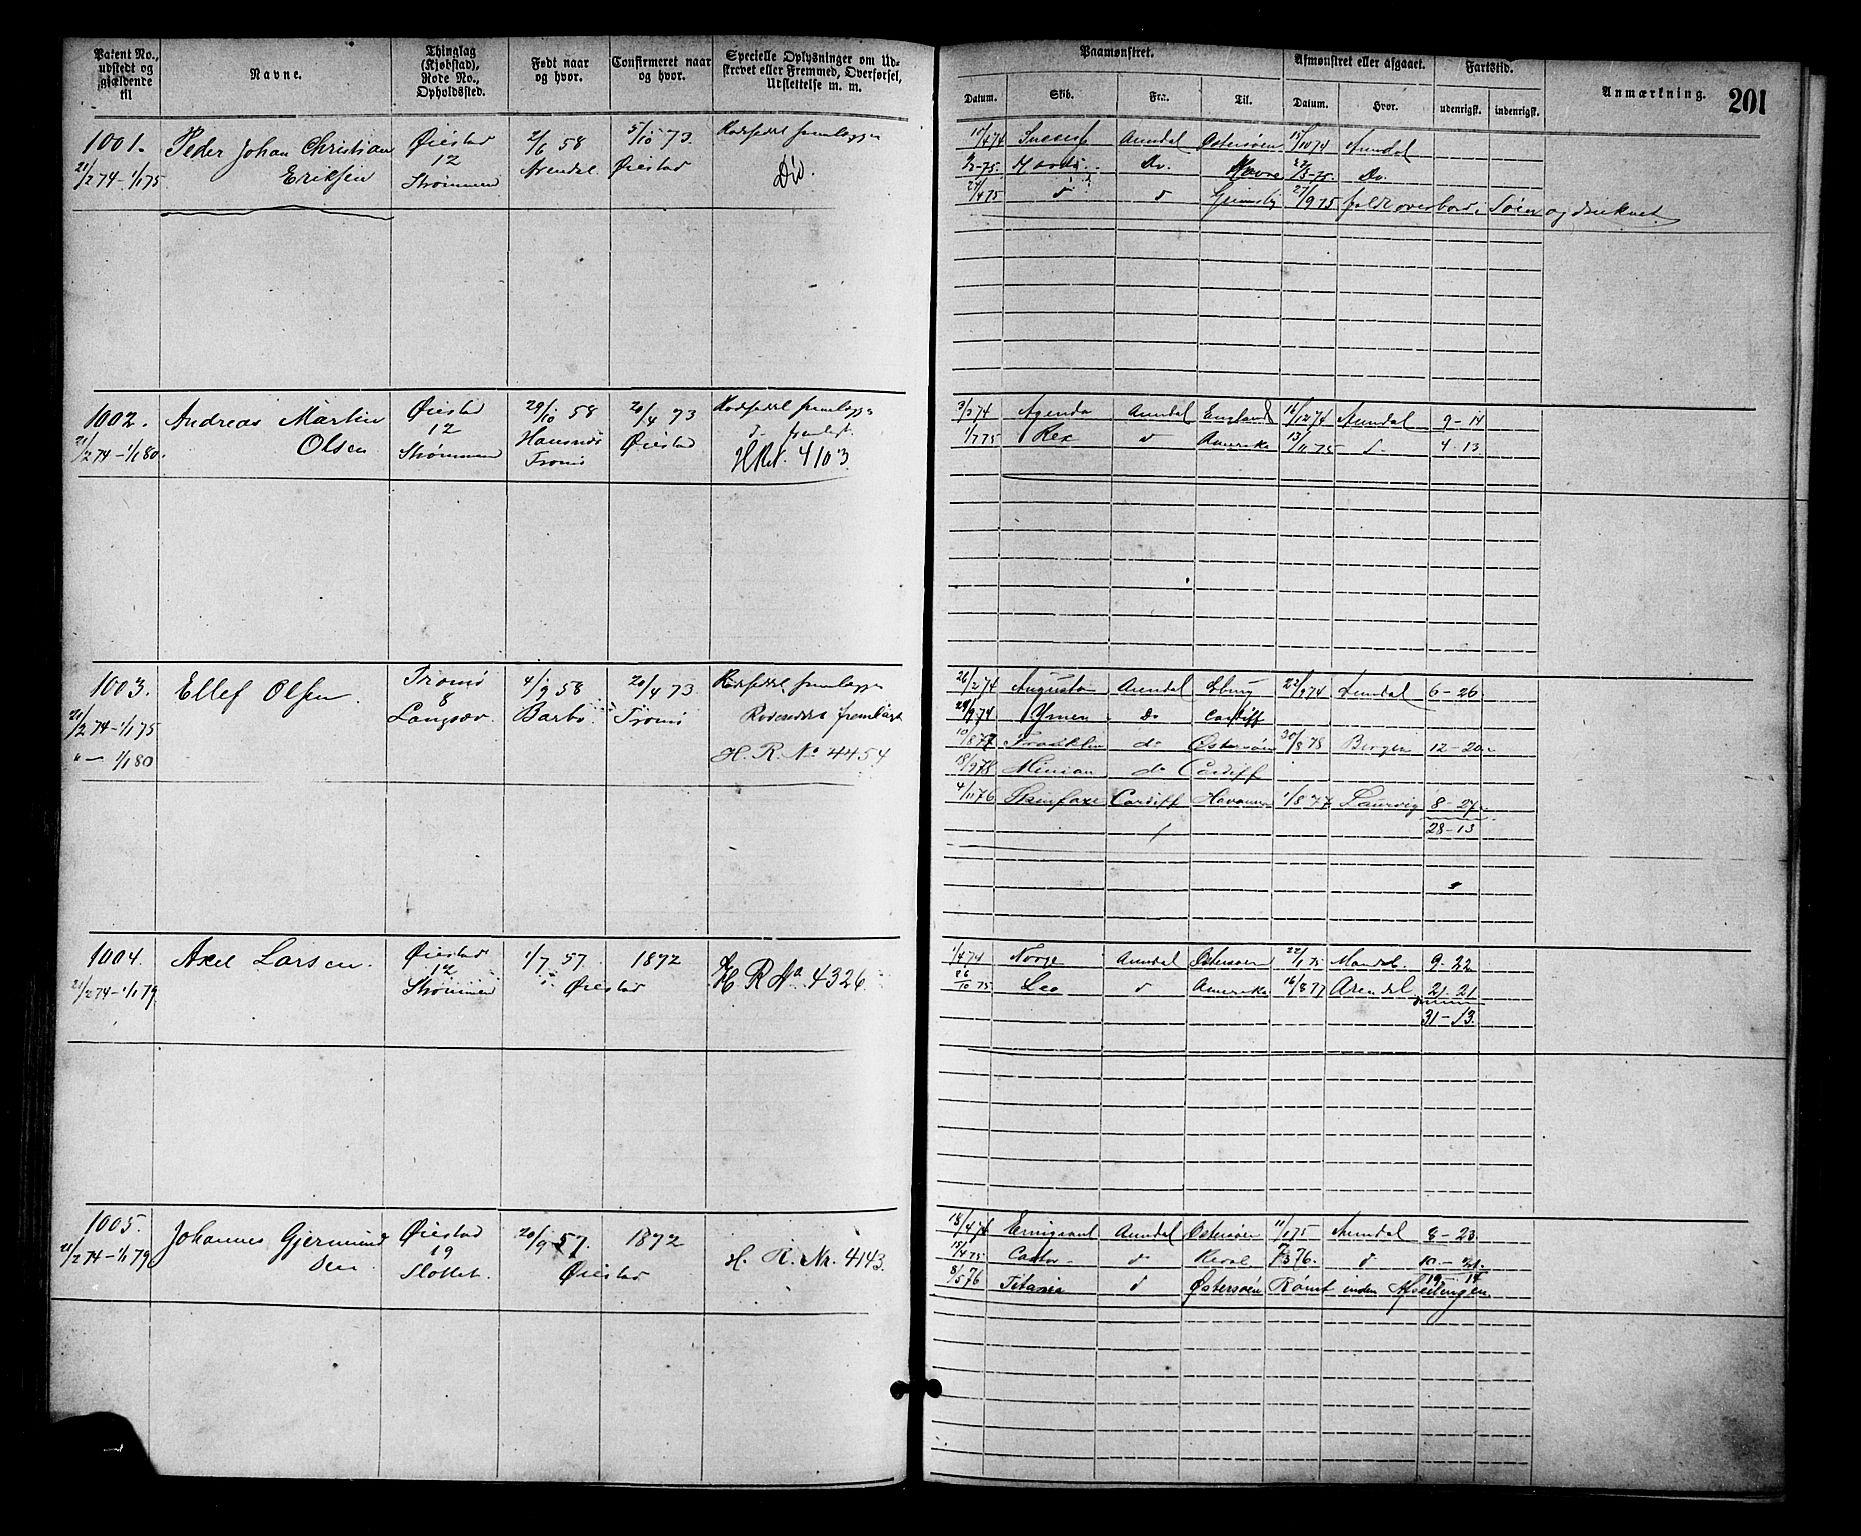 Patent No., udstedt og gjældende til
Navne.
Thinglag (Kjøbstad), Rode No., Opholdssted.
Født naar og hvor.
Confirmeret naar og hvor.
Specielle Oplysninger om Udskrevet eller Fremmed, Overførsel, Udslettelse m. m.
Paamønstret.
Afmønstret eller afgaaet.
Fartstid.
Anmærkning.
201
Datum.
Skib.
Fra.
Til.
Datum.
Hvor.
udenrigsk.
indenrigsk.
1001.
21/2 74-1/1 75
Peder Johan Christian
Eriksen
Øiestad
12
Strømmen
2/6 58
Arendal
5/10 73.
Øiestad
Død.
10/4 74 Success Arendal Østersøen 15/10 74 Arendal
Do. Havre Do.
27/4 75 d d Grimsby 21/9 75 faldt overbord i Søen og druknet
1002.
21/2 74-1/1 80.
Andreas Martin
Olsen
Øiestad
12
Strømmen
29/10 58
Tromø
20/4 73
Øiestad
H R No. 4103
3/3 74 Agenda Arendal England 16/12 74 Arendal 9-14
1/7 75 Rex d Amerika 13/11 75 d. 4-13
1003.
21/2 74-1/1 75
"- 1/1 80
Ellef Olsen
Tromø
8
Langsæv.
4/9 58
Barbo.
20/4 73.
Tromø
H. R. No 4454
26/2 74 Arendal 22/9 74 Arendal 6-26
29/9 74 Ymer Do Cardiff
10/8 77 Franklin do Østersøen 30/8 78 Bergen 12-20
18/9 78 do Cardiff
4/11 76 Skinfaxe Cardiff Havanna 1/8 77 Laurvig 8-27
28-13
1004.
21/2 74-1/1 79
Axel Larsen.
Øiestad
12
Strømmen
1/7 57.
Øiestad
1872
H R No. 4326.
1/4 74 Norge Arendal Østersøen 22/1 75 Mandal. 9-22
26/10 75 Leo d Amerika 16/8 77 Arendal 21-21
31-13.
1005.
21/2 74-1/1 79
Johannes Gjermund
sen
Øiestad
19
Slottet.
20/9 57.
Øiestad
1872
H. R. Nr. 4143.
18/4 74 Emigrant Arendal Østersøen 11/1 75 Arendal 8-23
15/4 75 Castor d Reval 7/3 76. d 10-21
19-14
8/5 76 Titania d Østersøen Rømt inden Afseilingen